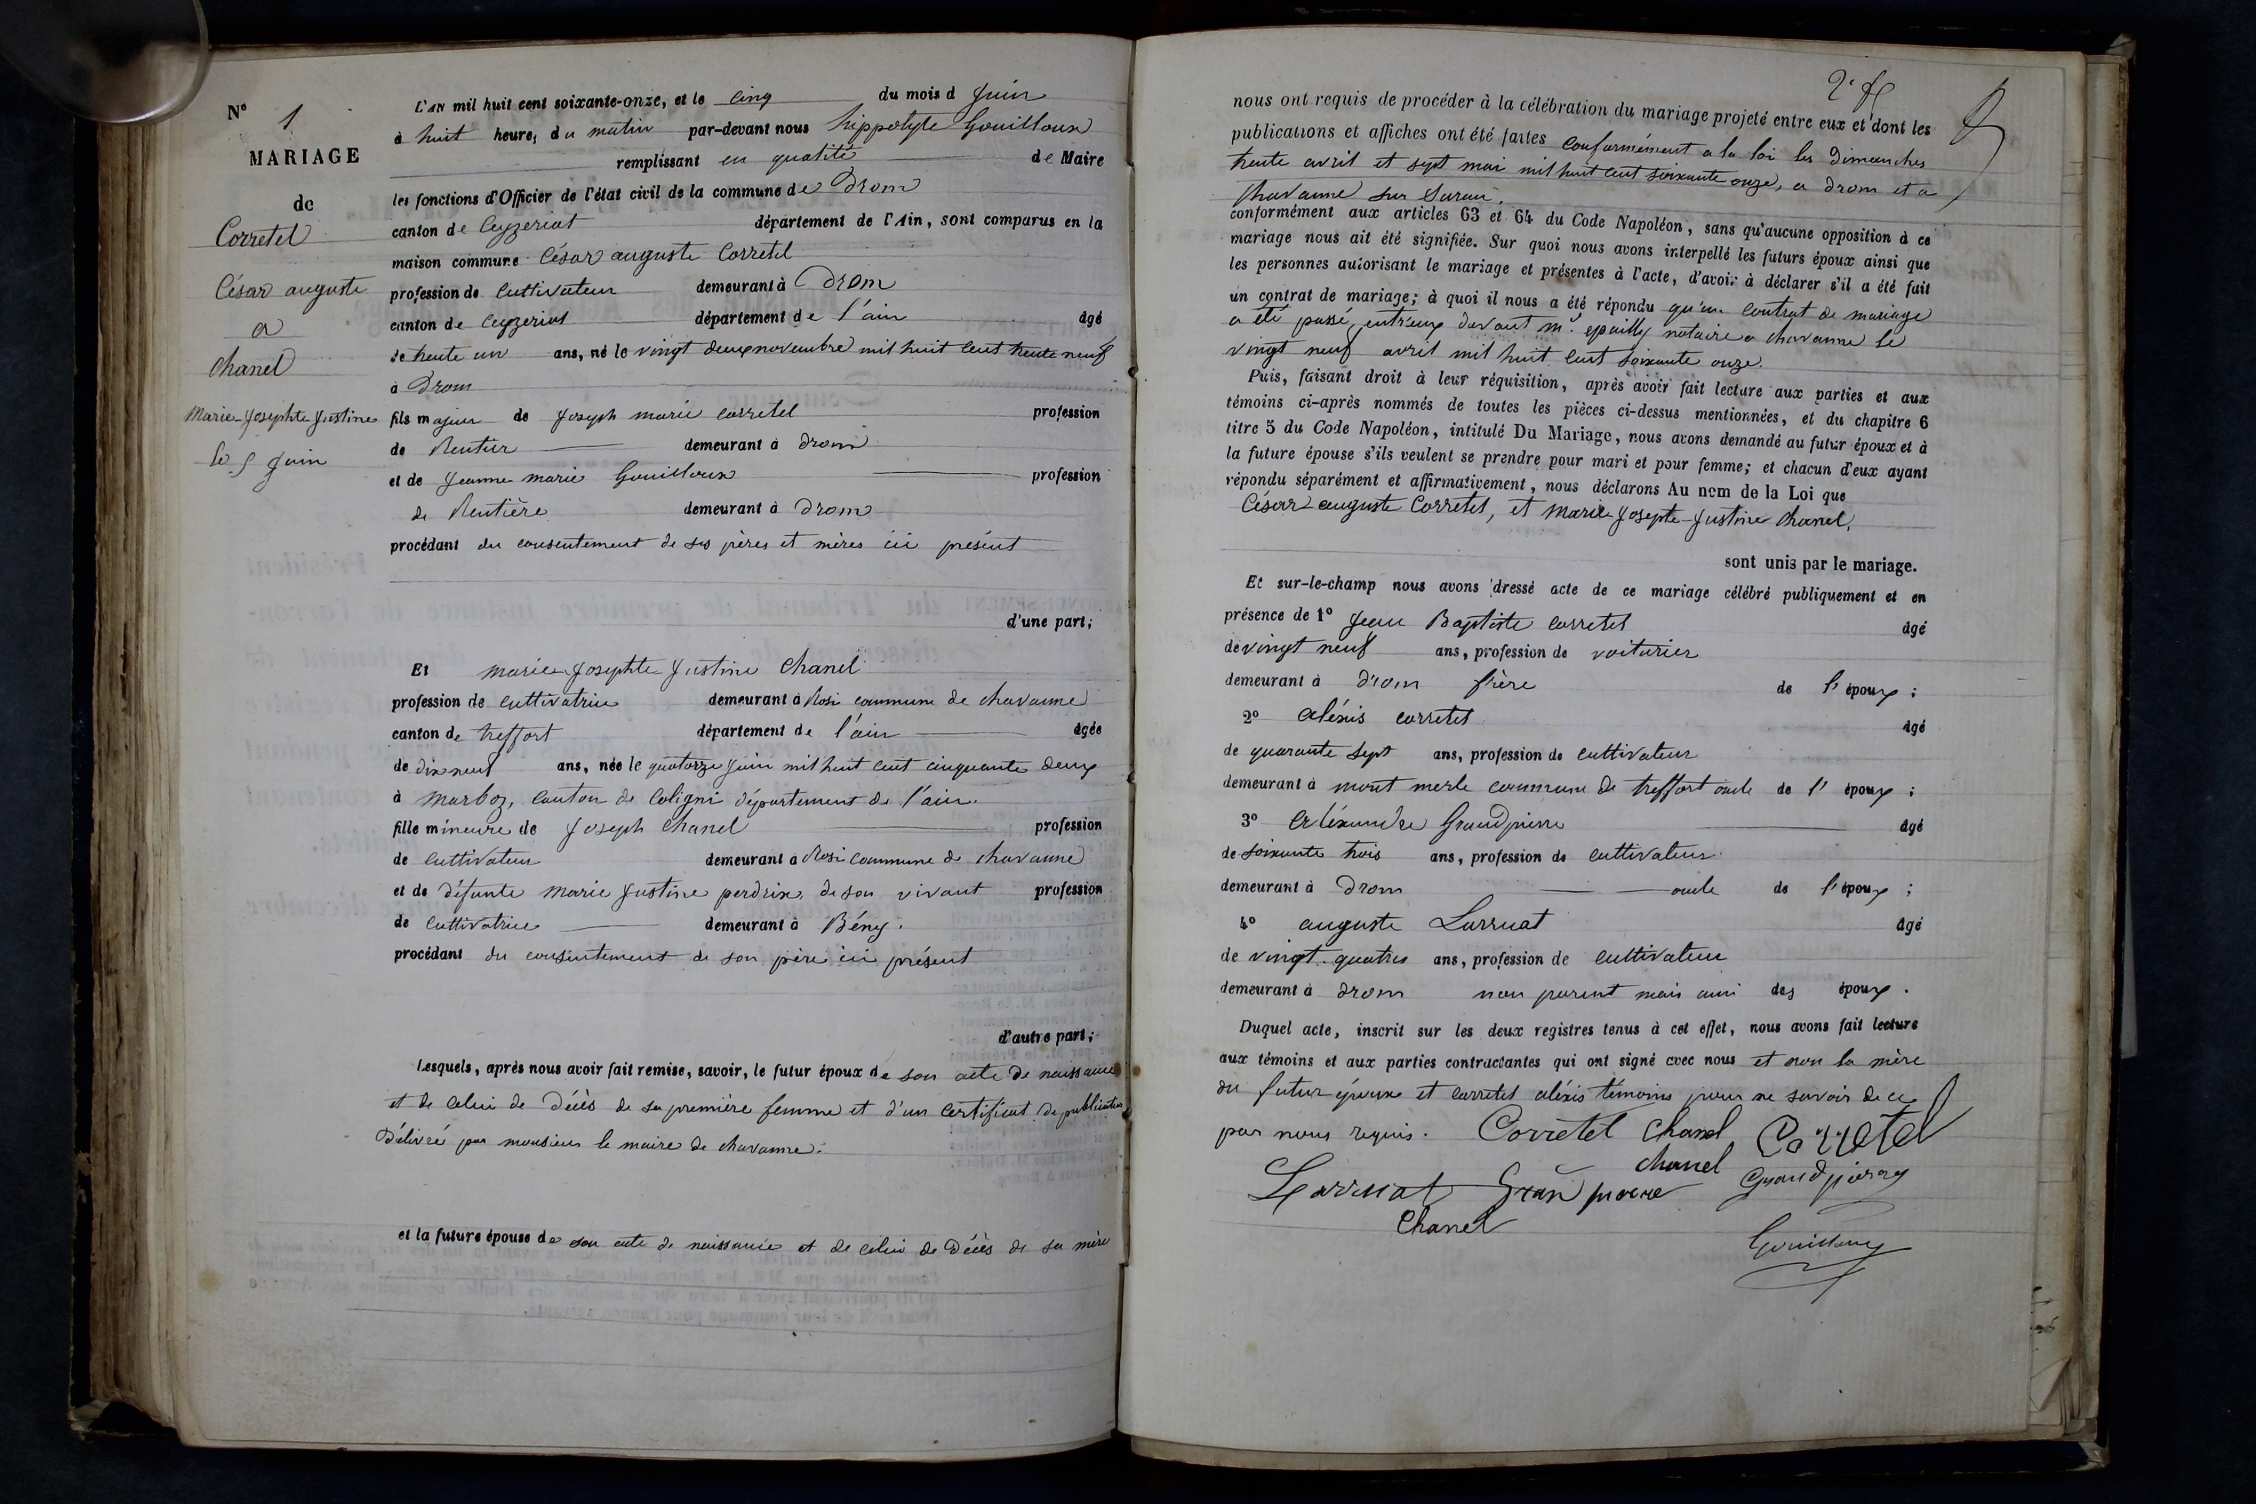 N° 1
MARIAGE
de
Corretel
César auguste
a
Chanel
Marie-Josephte Justine
le 5 Juin
L'AN mil huit cent soixante-onze, et le cinq du mois d Juin
à huit heure, du matin par-devant nous hippolyte Gouilloux
remplissant en qualité de Maire
les fonctions d'Officier de l'état civil de la commune de Drom
canton de Ceyzeriat département de l'Ain, sont comparus en la
maison commune César auguste Corretel
profession de Cultivateur demeurant à Drom
canton de Ceyzeriat département de l'ain âgé
de trente un ans, né le vingt deux novembre mil huit cent trente neuf
à Drom
fils majeur de Joseph marie corretel profession
de Rentier demeurant à drom
et de Jeanne marie Gouilloux profession
de Rentière demeurant à Drom
procédant du consentement de ses pères et mères ici présent
d'une part;
Et marie-Josephte Justine Chanel
profession de cultivatrice demeurant à Rosi commune de chavanne
canton de treffort département de l'ain âgée
de dix neuf ans, née le quatorze Juin mil huit cent cinquante deux
à marboz, canton de Coligni département de l'ain.
fille mineure de Joseph Chanel profession
de cultivateur demeurant à Rosi commune de chavanne
et de défunte marie Justine perdrix de son vivant profession
de cultivatrice demeurant à Bény.
procédant du consentement de son père ici présent
d'autre part;
Lesquels, après nous avoir fait remise, savoir, le futur époux de son acte de naissance
et de celui de Décès de sa première femme et d'un certificat de publication
Délivré par monsieur le maire de chavanne.
et la future épouse de son acte de naissance et de celui de Décès de sa mère
2e f
nous ont requis de procéder à la célébration du mariage projeté entre eux et dont les
publications et affiches ont été faites conformément a la loi les Dimanches
trente avril et sept mai mil huit cent soixante onze, a drom et a
chavanne sur Suran.
conformément aux articles 63 et 64 du Code Napoléon, sans qu'aucune opposition à ce
mariage nous ait été signifiée. Sur quoi nous avons interpellé les futurs époux ainsi que
les personnes autorisant le mariage et présentes à l'acte, d'avoir à déclarer s'il a été fait
un contrat de mariage; à quoi il nous a été répondu qu'un contrat de mariage
a été passé entr'eux devant me epailly notaire a chavanne le
vingt neuf avril mil huit cent soixante onze.
Puis, faisant droit à leur réquisition, après avoir fait lecture aux parties et aux
témoins ci-après nommés de toutes les pièces ci-dessus mentionnées, et du chapitre 6
titre 5 du Code Napoléon, intitulé Du Mariage, nous avons demandé au futur époux et à
la future épouse s'ils veulent se prendre pour mari et pour femme; et chacun d'eux ayant
répondu séparément et affirmativement, nous déclarons Au nom de la Loi que
César auguste Corretel, et marie Josepte-Justine Chanel,
sont unis par le mariage.
Et sur-le-champ nous avons dressé acte de ce mariage célébré publiquement et en
présence de 1° Jean Baptiste corretel âgé
de vingt neuf ans, profession de voiturier
demeurant à drom frère de l'époux;
2° aléxis corretel âgé
de quarante sept ans, profession de cultivateur
demeurant à mont merle commune de treffort oncle de l'époux;
3° Aléxandre Grandpierre âgé
de soixante trois ans, profession de cultivateur
demeurant à Drom oncle de l'époux;
4° auguste Larruat âgé
de vingt-quatres ans, profession de cultivateur
demeurant à drom non parent mais ami des époux.
Duquel acte, inscrit sur les deux registres tenus à cet effet, nous avons fait lecture
aux témoins et aux parties contractantes qui ont signé avec nous et non la mère
du futur époux et corretel aléxis témoins pour ne savoir de ce
par nous requis. Corretel Chanel Corretel
chanel
Larruat Gran pierre Grandpierre
Chanel
Gouilloux